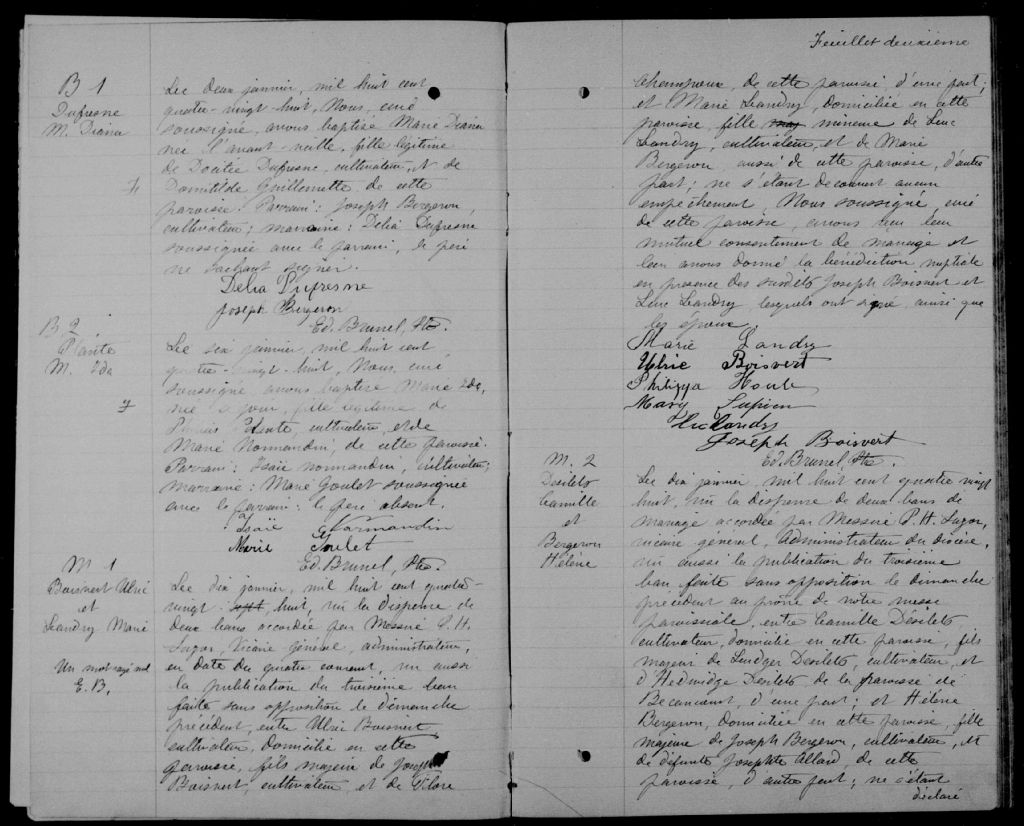 B 1
Dufresne
M. Diana
Le deux janvier, mil huit cent
quatre-vingt-huit, Nous, curé
soussigné, avons baptisé Marie Diana
née l'avant-veille, fille légitime
de Dufresne, cultivateur, et de
Domitilde Guillemette de cette
paroisse. Parrain: Joseph Bergeron,
cultivateur; marraine: Délia Dufresne
soussignée avec le parrain, le père
ne sachant signer.
Délia Dufresne
Joseph Bergeron
Ed. Brunel, Ptre.
B 2
Plante
M. Ida
Le six janvier, mil huit cent
quatre-vingt-huit, Nous, curé
soussigné, avons baptisé Marie Ida,
née ce jour, fille légitime de
cultivateur, et de
Marie Normandin, de cette paroisse.
Parrain: Isaïe Normandin, cultivateur;
marraine: Marie Goulet soussignée
avec le parrain: le père absent.
Isaïe Normandin
Marie Goulet
Ed. Brunel, Ptre.
M 1
Boisvert Ulric
et
Landry Marie
Un mot rayé nul
E. B.
Le dix janvier, mil huit cent quatre-
vingt-sept, huit, vu la dispense de
deux bans accordée par Messire P. H.
Suzor, Vicaire général, administrateur,
en date du quatre courant, vu aussi
la publication du troisième ban
faite sans opposition le dimanche
précédent, entre Ulric Boisvert
cultivateur, domicilié en cette
paroisse, fils majeur de Joseph
Boisvert, cultivateur, et de
Feuillet deuxième
Champoux, de cette paroisse d'une part;
et Marie Landry, domiciliée en cette
paroisse, fille maj mineure de Luc
Landry, cultivateur, et de Marie
Bergeron, aussi de cette paroisse, d'autre
part; ne s'étant découvert aucun
empêchement, Nous soussigné, curé
de cette paroisse, avons reçu leur
mutuel consentement de mariage et
leur avons donné la bénédiction nuptiale
en présence des susdits Joseph Boisvert et
Luc Landry, lesquels ont signé ainsi que
les époux.
Marie Landry
Ulric Boisvert
Philippa Houle
Mary
Luc Landry
Joseph Boisvert
Ed. Brunel, Ptre.
M. 2
Desilets
Camille
et
Bergeron
Hélène
Le dix janvier, mil huit cent quatre vingt
huit, vu la dispense de deux bans de
mariage accordée par Messire P. H. Suzor,
vicaire général, Administrateur du diocèse,
vu aussi la publication du troisième
ban faite sans opposition le dimanche
précédent au prône de notre messe
paroissiale, entre Camille Désilets
cultivateur, domicilié en cette paroisse, fils
majeur de Ludger Desilets, cultivateur, et
d'Hedwidge Desilets de la paroisse de
Bécancourt, d'une part; et Hélène
Bergeron, domiciliée en cette paroisse, fille
majeure de Joseph Bergeron, cultivateur, et
de défunte Josephte Allard, de cette
paroisse, d'autre part; ne s'étant
déclaré